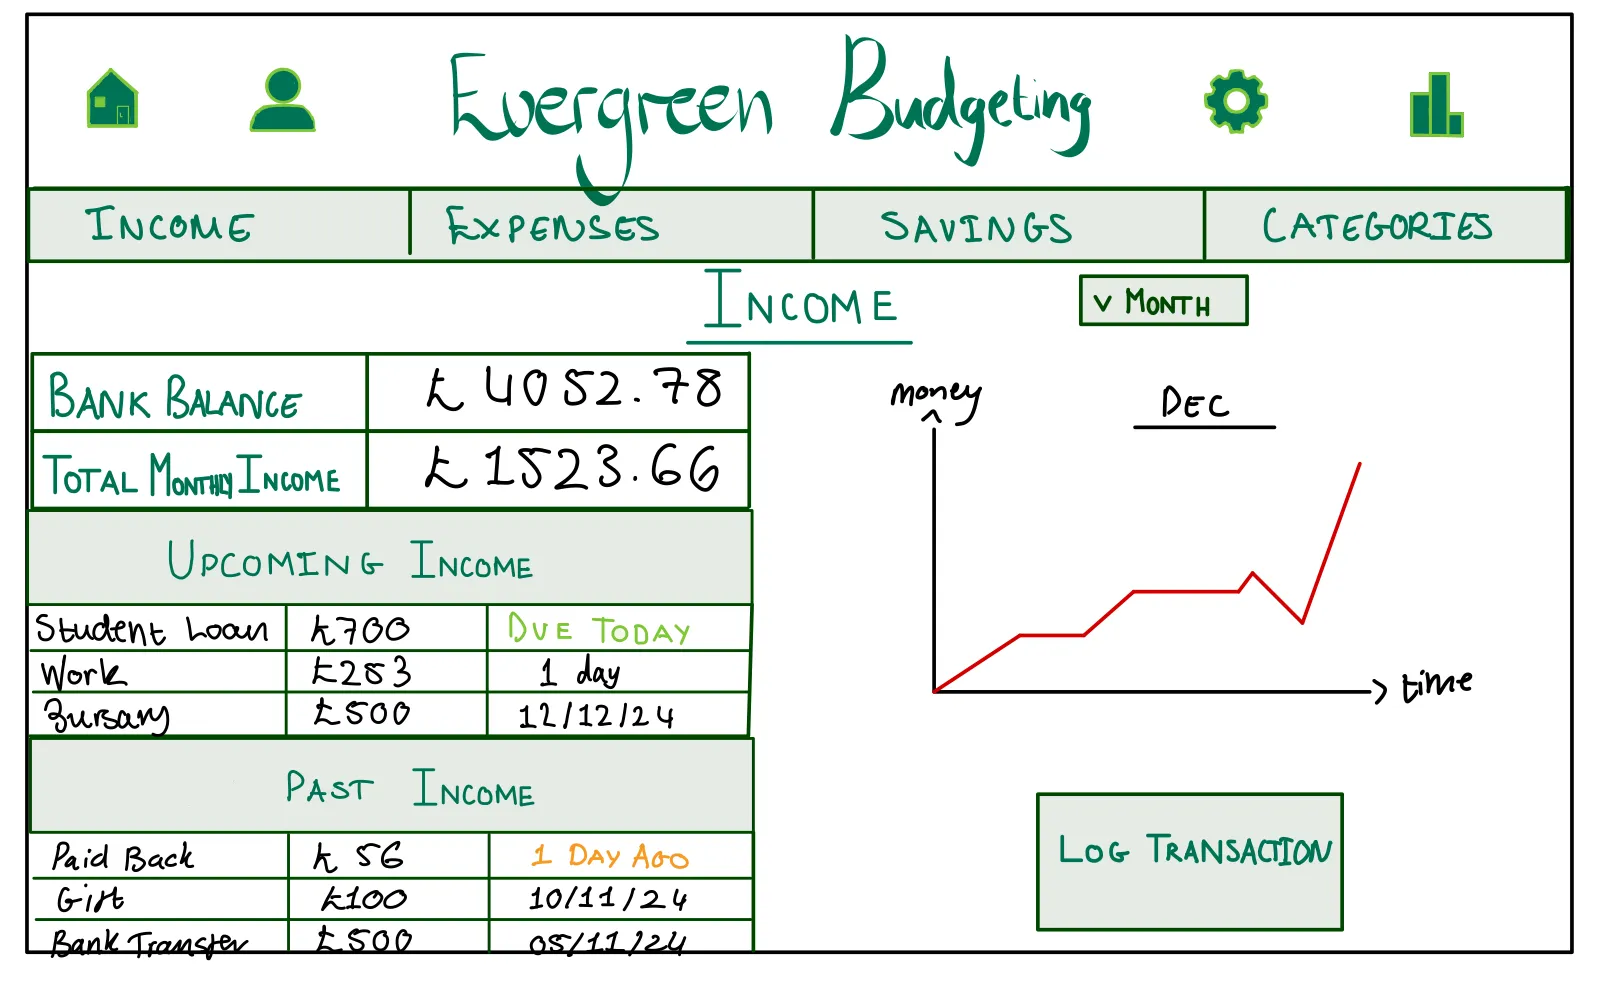 Evergreen Budgeting
INCOME EXPENSES SAVINGS CATEGORIES
INCOME
v MONTH
BANK BALANCE £4052.78
TOTAL MONTHLY INCOME £1523.66
UPCOMING INCOME
Student Loan £700 DUE TODAY
Work £253 1 day
Bursary £500 12/12/24
PAST INCOME
Paid Back £56 1 DAY AGO
Gift £100 10/11/24
Bank Transfer £500 05/11/24
money
DEC
time
LOG TRANSACTION